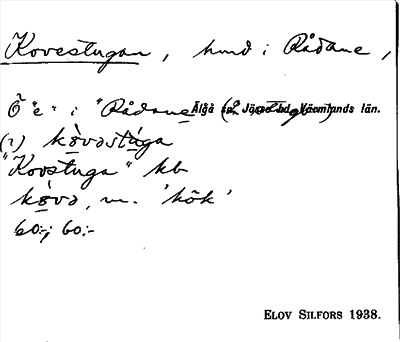 Kovestugan, hmd i Rådane,
Ö "e" i "Rådane Älgå sn. Jösse hd. Värmlands län.
(1) kòvəstúga
"Kovstuga" kb
kòvə, m. 'kök'
60:-; 60:-
ELOV SILFORS 1938.